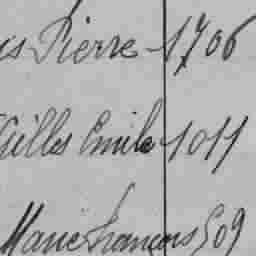 Pierre 1706
Gilles Emile 1011
Marie François 509